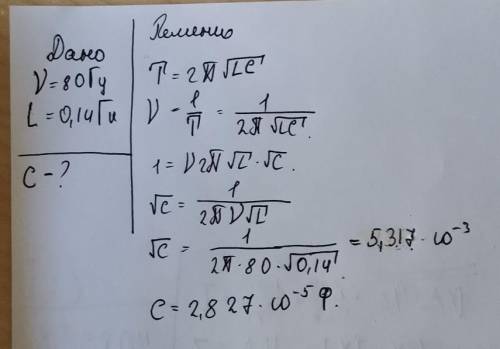 Дано
ν = 80 Гц
L = 0,14 Гн
C - ?
Решение
T = 2π √LC
ν = 1/T = 1/(2π √LC).
1 = ν 2π √L · √C.
√C = 1/(2π ν √L)
√C = 1/(2π · 80 · √0,14) = 5,317 · 10⁻³
C = 2,827 · 10⁻⁵ Ф.